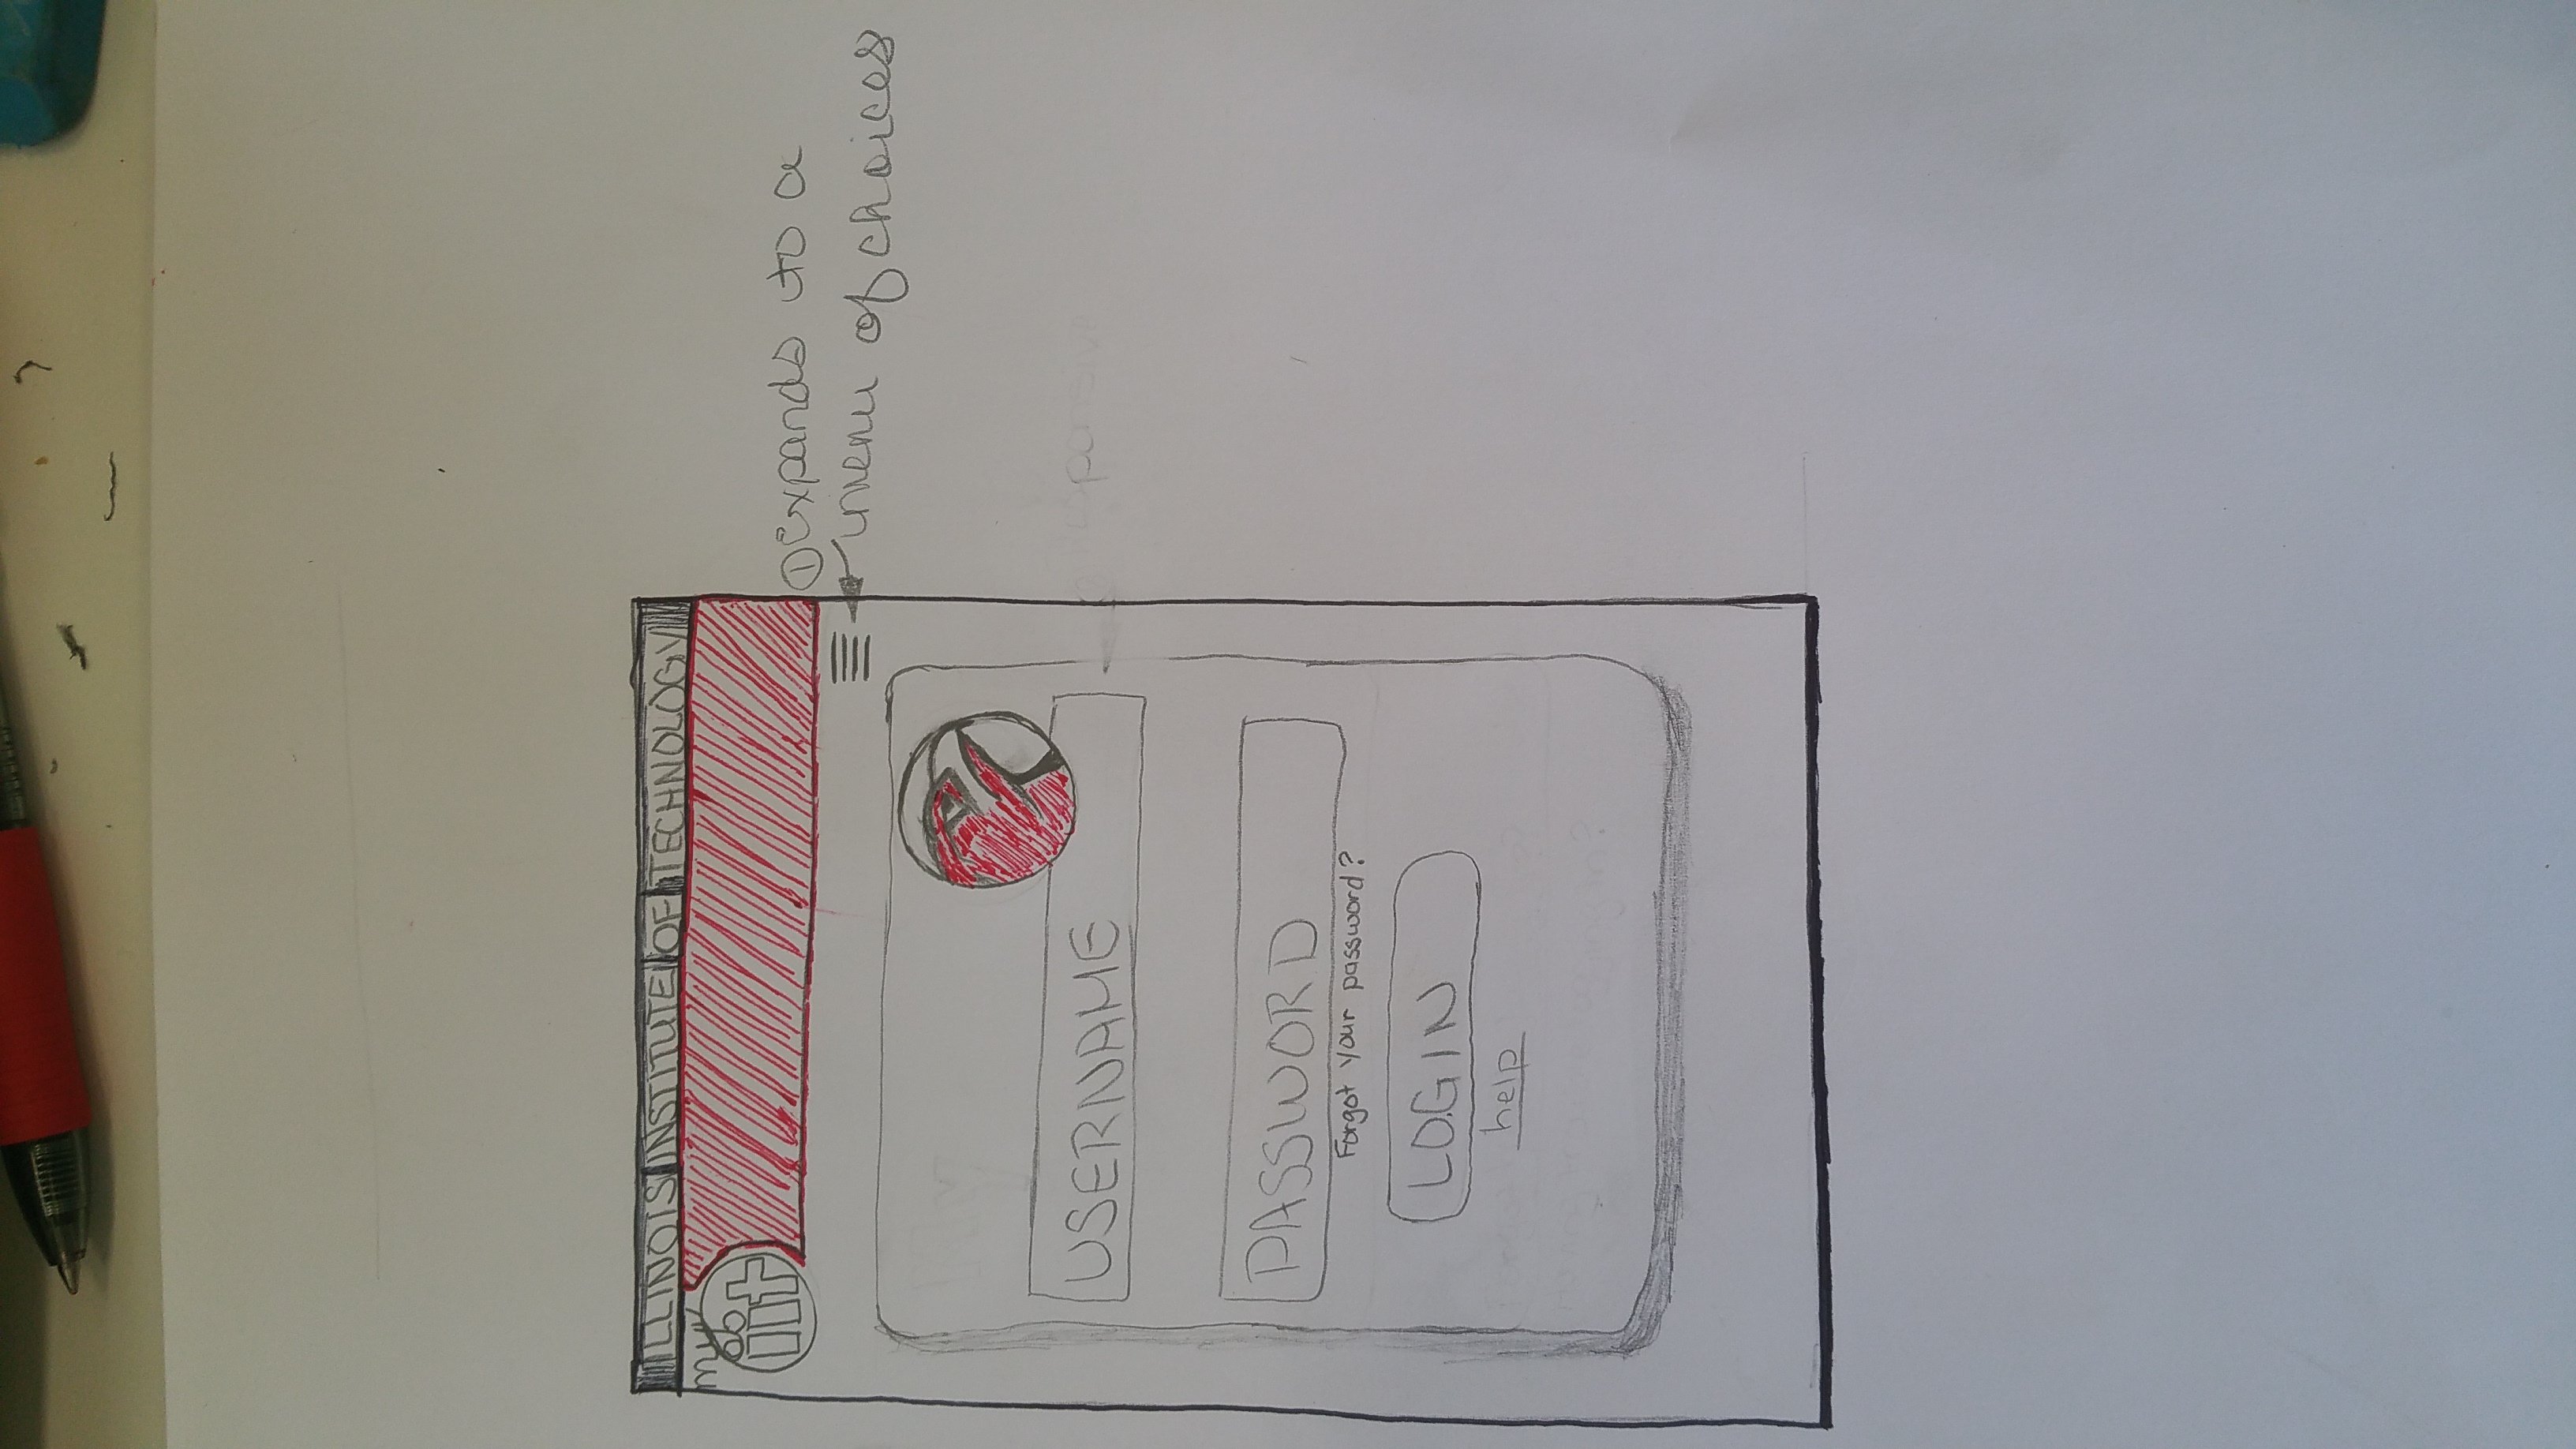 ILLINOIS INSTITUTE OF TECHNOLOGY
my
iit
① expands to a
menu of choices
USERNAME
PASSWORD
Forgot your password?
LOGIN
help